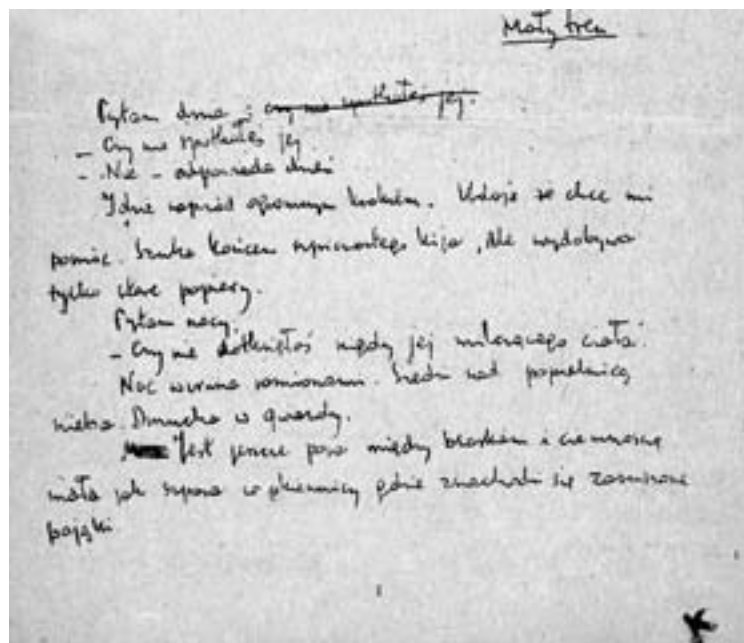 Mały tren
Pytam dnia : czy nie spotkałeś jej.
– Czy nie spotkałeś jej
– Nie – odpowiada dzień
Idzie naprzód ogromnym krokiem. Udaje że chce mi
pomóc. Szuka końcem szpiczastego kija, Ale wydobywa
tylko stare papiery.
Pytam nocy.
– Czy nie dotknęłaś nigdy jej milczącego ciała.
Noc wzrusza ramionami. Siedzi nad popielnicą
nieba. Dmucha w gwiazdy.
Jest jeszcze pora między blaskiem i ciemnością
mała jak szpara w piwnicy gdzie znachodzi się zasuszone
pająki